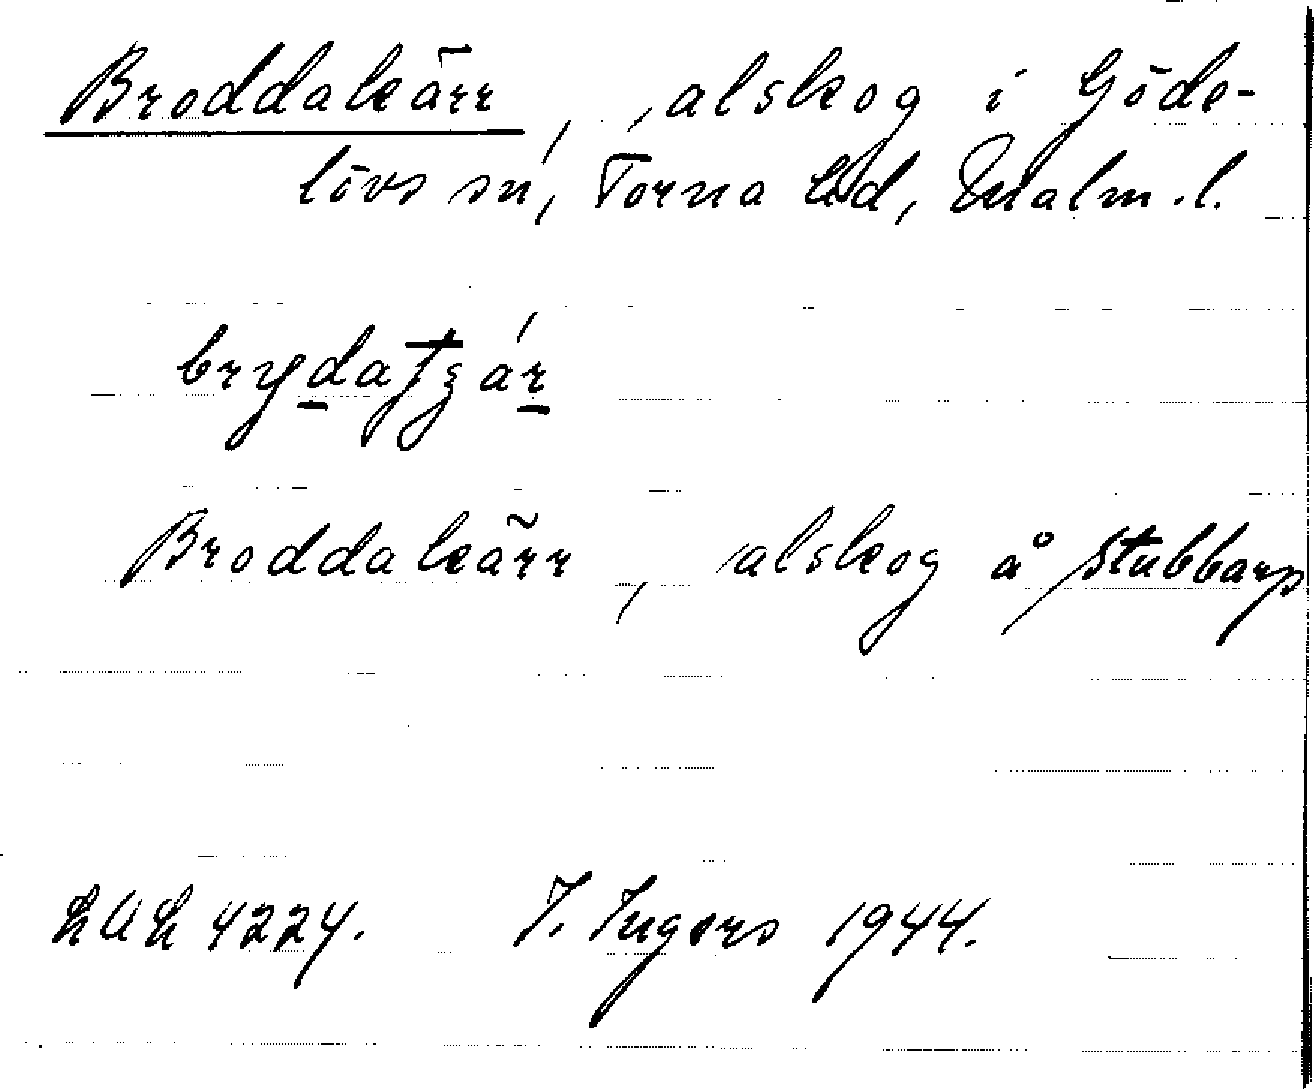 Broddakärr, alskog i Göde-
lövs sn, Torna hd, Malm.l.
Broddakärr, alskog å Stubbarp
LUL 4224. I. Ingers 1944.